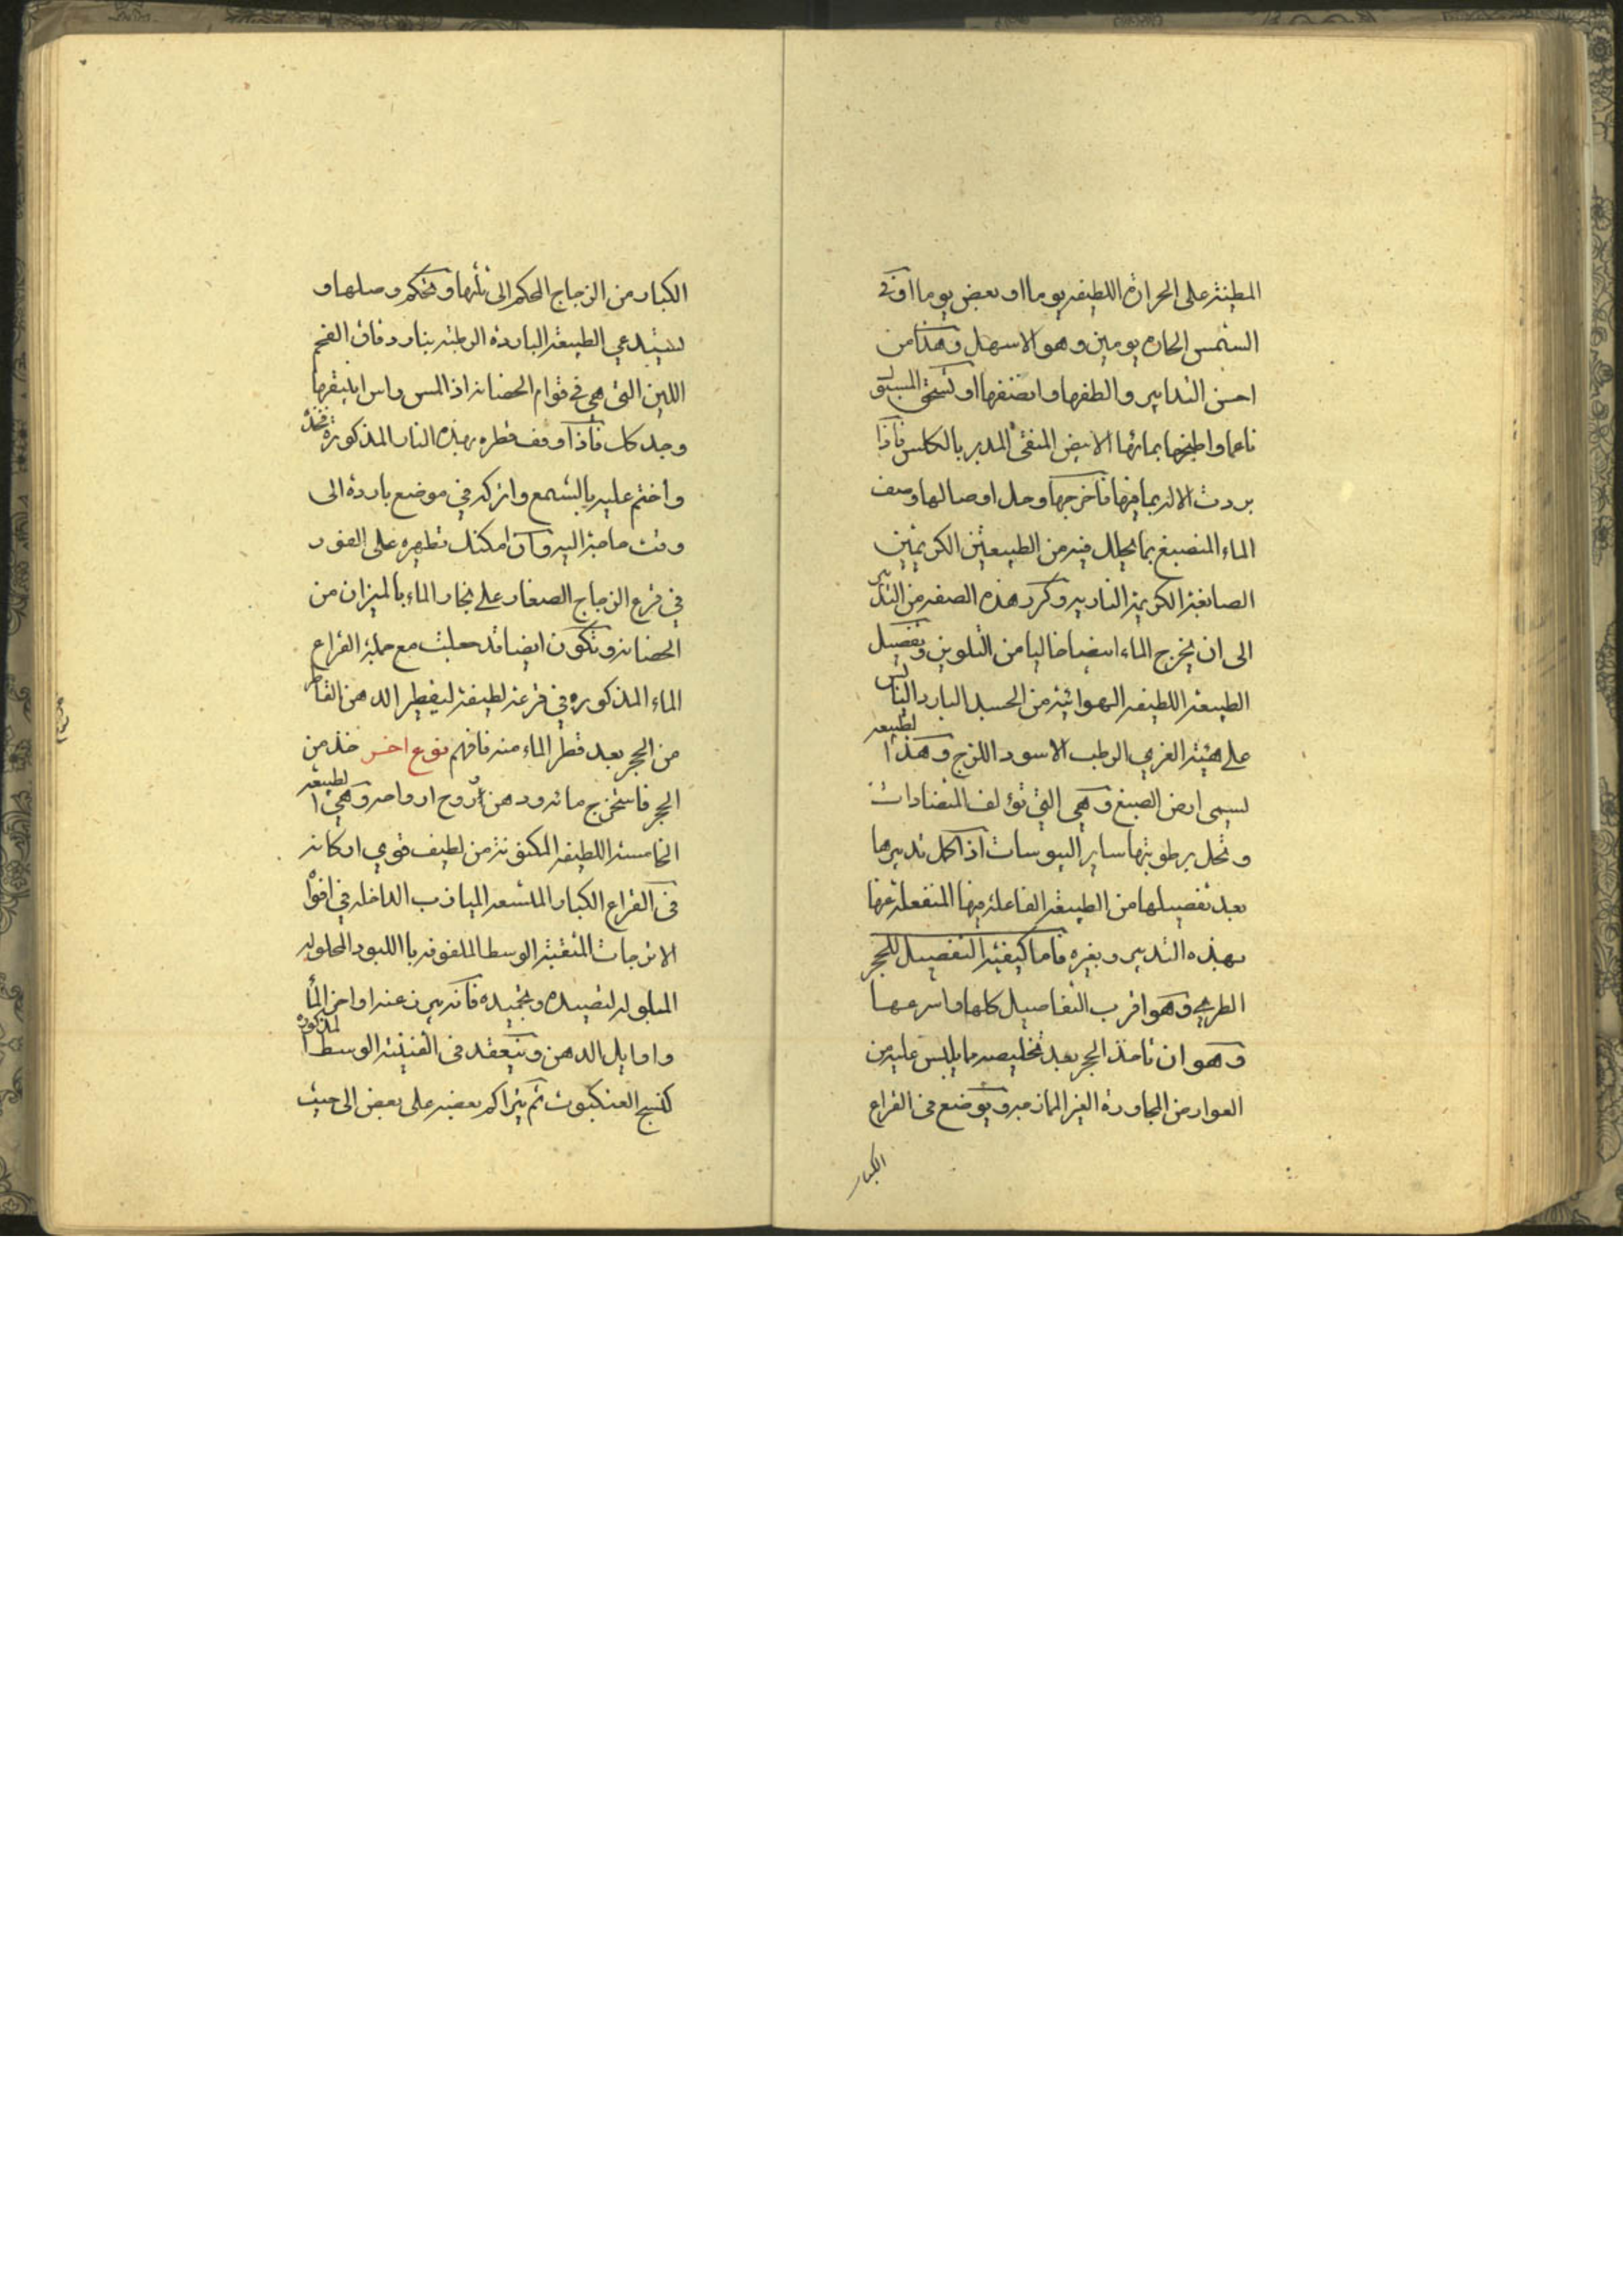 المطينة على الحرارة اللطيفه يوما او بعض يوما او في
الشمس الحاره يومين وهو الاسهل وهذا من
احسن التدابير والطفها وانصفها او تسحق
ناعما واطبخها بمائها الابيض المنقى المدبر بالكلس فاذا
بردت الاله بما فيها فاخرجها وحل اوصالها وصف
الماء المنصبغ بما يحلل فيه من الطبيعتين الكريمتين
الصابغة الكريمة الناريه وكرر هذه الصفه من التدبير
الى ان يخرج الماء ابيضا خاليا من التلوين وتفصيل
الطبيعة اللطيفه الهوائية من الجسد البارد اليابس
على هيئة الغري الرطب الاسود اللزج وهذا الطبيعه
تسمى ارض الصبغ وهي التي تؤلف المتضادات
وتحل برطوبتها ساير اليبوسات اذا كمل تدبيرها
بعد تفصيلها من الطبيعة الفاعلة فيها المنفعلة عنها
بهذه التدبير وبغيره فاما كيفية التفصيل للحجر
الطري وهو اقرب التفاصيل كلها واسرعها
وهو ان تاخذ الحجر بعد تخليصه ما يلبس عليه من
العوارض المجاورة الغير الممازجه ويوضع في القراع
الكبار
الكبار من الزجاج المحكم الى ثلثها وتحكم وصلها و
تستدعي الطبيعة الباردة الرطبة بنار دقاق الفحم
اللين التي هي في قوام الحضانه اذا لمس راس انبيقها
وجد كال فاذا وقف قطره بهذه النار المذكورة فخذه
واختم عليه بالشمع واتركه في موضع باردة الى
وقت حاجة اليه وان امكنك تطهيره على الفور
في قرع الزجاج الصغار على بخار الماء بالميزان من
الحضانه وتكون ايضا قد جعلت مع جملة القراع
الماء المذكوره في قرعة لطيفة ليقطر الدهن القاطر
من الحجر بعد قطر الماء منه فافهم نوع اخر خذ من
الحجر فاستخرج مائه ودهن روح ارواحه وهي الطبيعة
الخامسة اللطيفه المكنونة من لطيف قوي اركانه
في القراع الكبار المتسعه الميازب الداخله في افواه
الاترجات المثقبة الوسط الملفوفه باللبود المحلوله
المبلوله لتصيده وتجميده فانه يبرز عند اواخر الماء
واوايل الدهن وينعقد في القنينة الوسط المذكورة
كنسج العنكبوت ثم يتراكم بعضه على بعض الى حيث